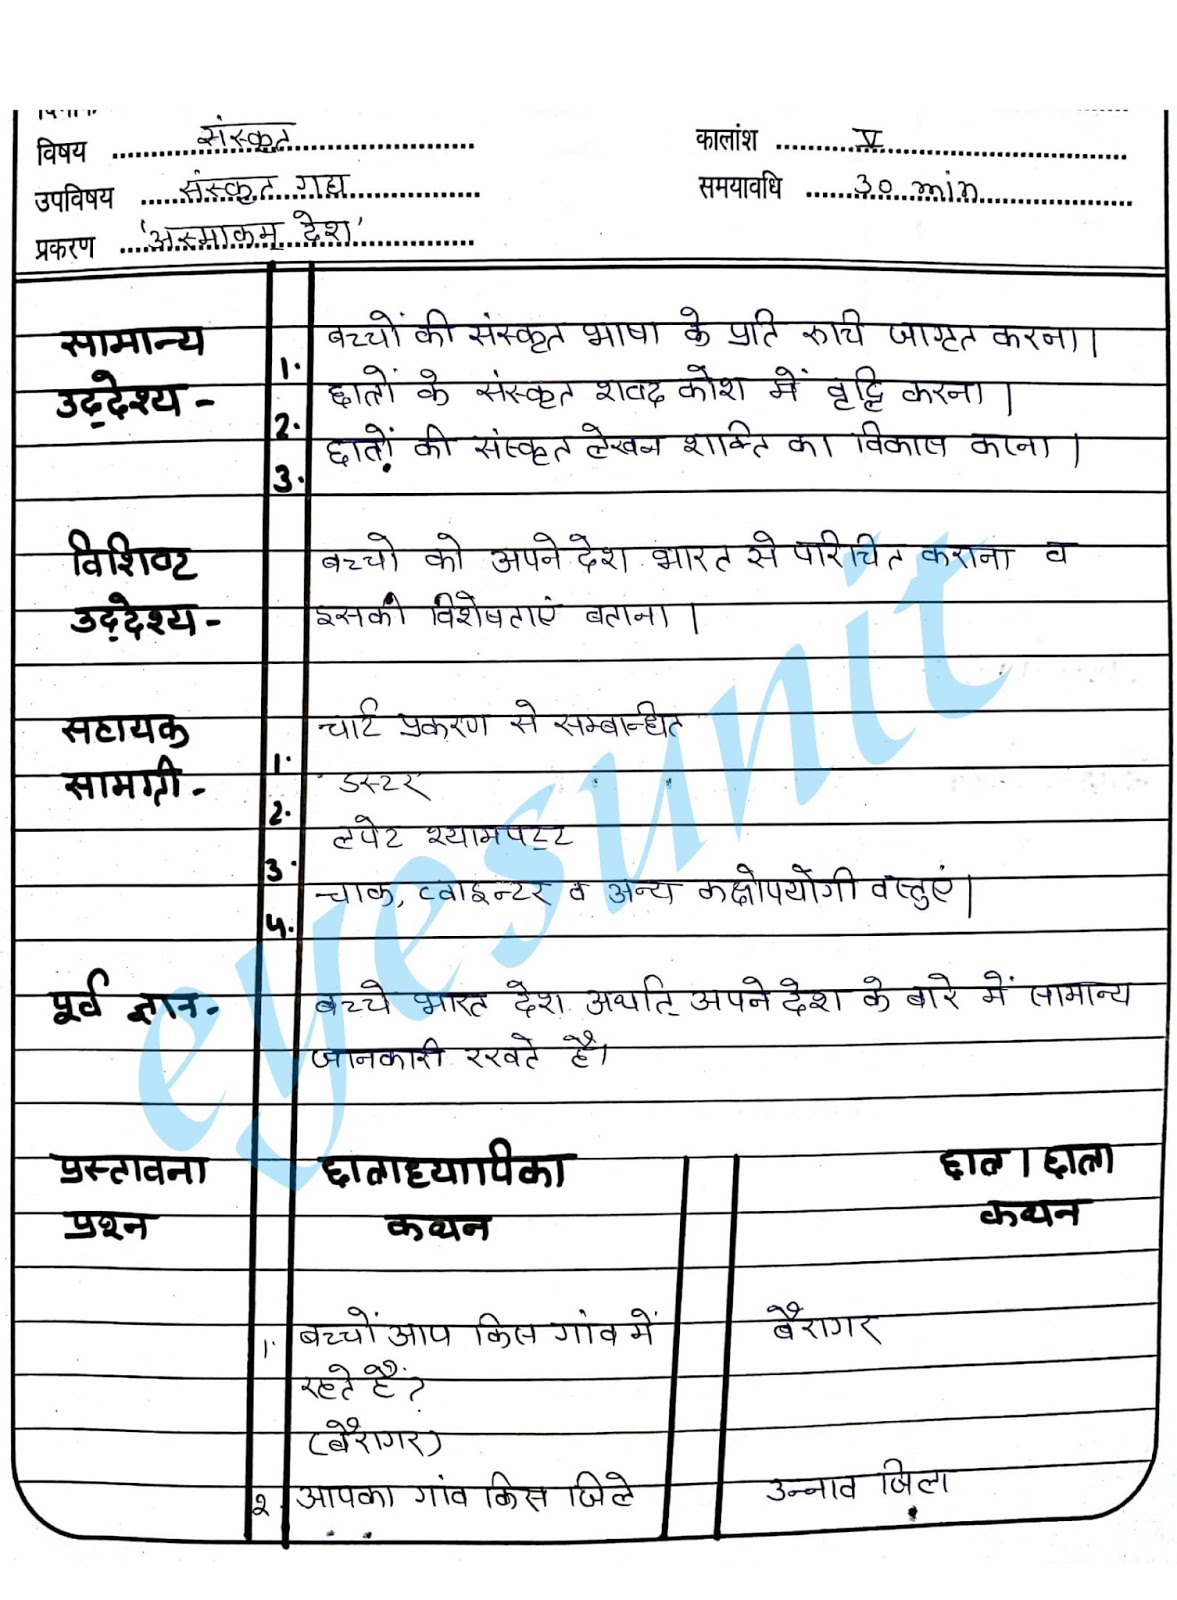 विषय संस्कृत कालांश V
उपविषय संस्कृत गद्य समयावधि 30 min
प्रकरण 'अस्माकम् देश'
सामान्य बच्चों की संस्कृत भाषा के प्रति रुचि जागृत करना।
उद्देश्य - 1. छात्रों के संस्कृत शब्द कोश में वृद्धि करना।
2. छात्रों की संस्कृत लेखन शक्ति का विकास करना।
3.
विशिष्ट बच्चो को अपने देश भारत से परिचित कराना व
उद्देश्य - इसकी विशेषताएं बताना।
सहायक चार्ट प्रकरण से सम्बन्धित
सामग्री - 1. डस्टर
2. लपेट श्यामपट्ट
3. चाक, प्वाइन्टर व अन्य कक्षोपयोगी वस्तुएं।
4.
पूर्व ज्ञान - बच्चे भारत देश अर्थात् अपने देश के बारे में सामान्य
जानकारी रखते है।
प्रस्तावना छात्राध्यापिका छात्र / छात्रा
प्रश्न कथन कथन
1. बच्चों आप किस गांव में बैरागर
रहते हैं?
(बैरागर)
२. आपका गांव किस जिले उन्नाव जिला
eyesunit